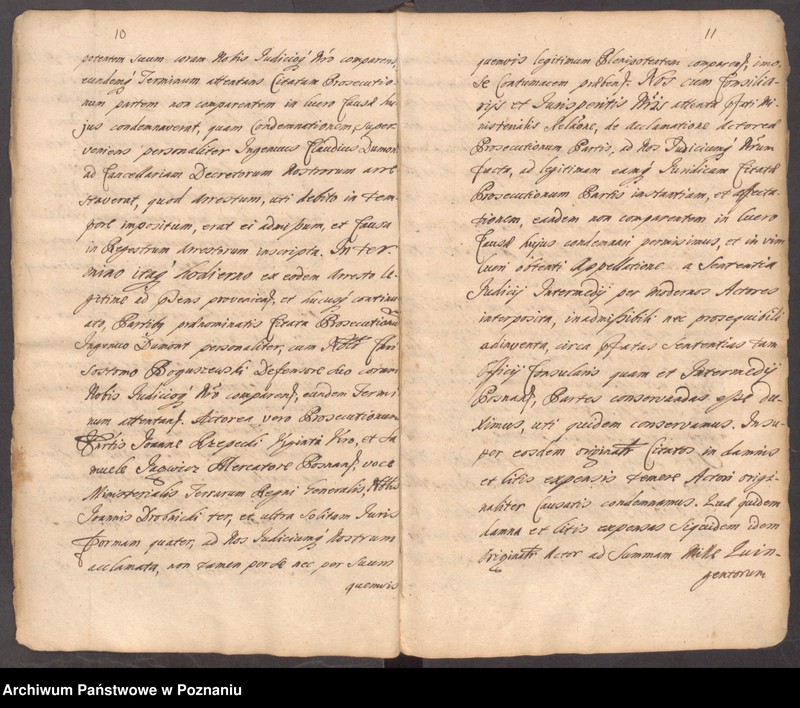 10
petentem suum coram Nobis Judicioq́ Nr̃o comparens,
eundemq́ Terminum attentans Citatum Prosecutio-
num partem non comparentem in lucro Causæ hu-
jus condemnaverat, quam Condemnationem, super-
veniens personaliter Ingenuus Claudius Dumont
ad Cancellariam Decretorum Nostrorum arre-
staverat, quod arrestum, uti debito in tem-
pore impositum, erat ei admissum, et Causa
in Regestrum Arrestorum inscripta. In Ter-
mino itaq́ hodierno ex eodem Arresto le-
gitime ad p̃sens provenien, et hucusq́ continu-
ato, Partibq prænominatis Citata Prosecutionũ
Ingenuo Dumont personaliter, cum Nobli Chri-
sostomo Boguszewski Defensore suo coram
Nobis Judicioq́ Nr̃o comparen, eundem Termi-
num attentan. Actorea vero Prosecutionum
Partis Joanne Rzepecki
et Sa-
muele Mercatore Posnan, voce
Ministerialis Terrarum Regni Generalis, Nobis
Joannis Drobnicki ter, et ultra solitam Juris
Formam quater, ad Nos Judiciumq́ Nostrum
acclamata, non tamen per se nec per suum
quemvis
11
quemvis legitimum Plenipotentem comparen, imo,
se Contumacem præben. Nos cum Consilia-
rijs et Jurisperitis Nr̃is attenta p̃fati Mi-
nisterialis Relãone, de acclamatione Actoreæ
Prosecutionum Partis, ad Nos Judiciumq́ Nr̃um
facta, ad legitimam eamq́ Juridicam Citatæ
Prosecutionum Partis instantiam, et affecta-
tionem, eandem non comparentem in lucro
Causæ hujus condemnari permisimus, et in vim
lucri obtenti Appellatione a Sententia
Judicij Intermedij per modernos Actores
interposita, inadmissibili nec prosequibili
adinventa, circa p̃fatas Sententias tam
Officij Consularis quam et Intermedij
Posnan, Partes conservandas esse du-
ximus, uti quidem conservamus. Insu-
per eosdem originalr Citatos in damnis
et litis expensis temere Actori origi-
naliter Causatis condemnamus. Quæ quidem
damna et litis expensas siquidem idem
Originalr Actor ad Summam Mille Quin-
gentorum
Archiwum Państwowe w Poznaniu